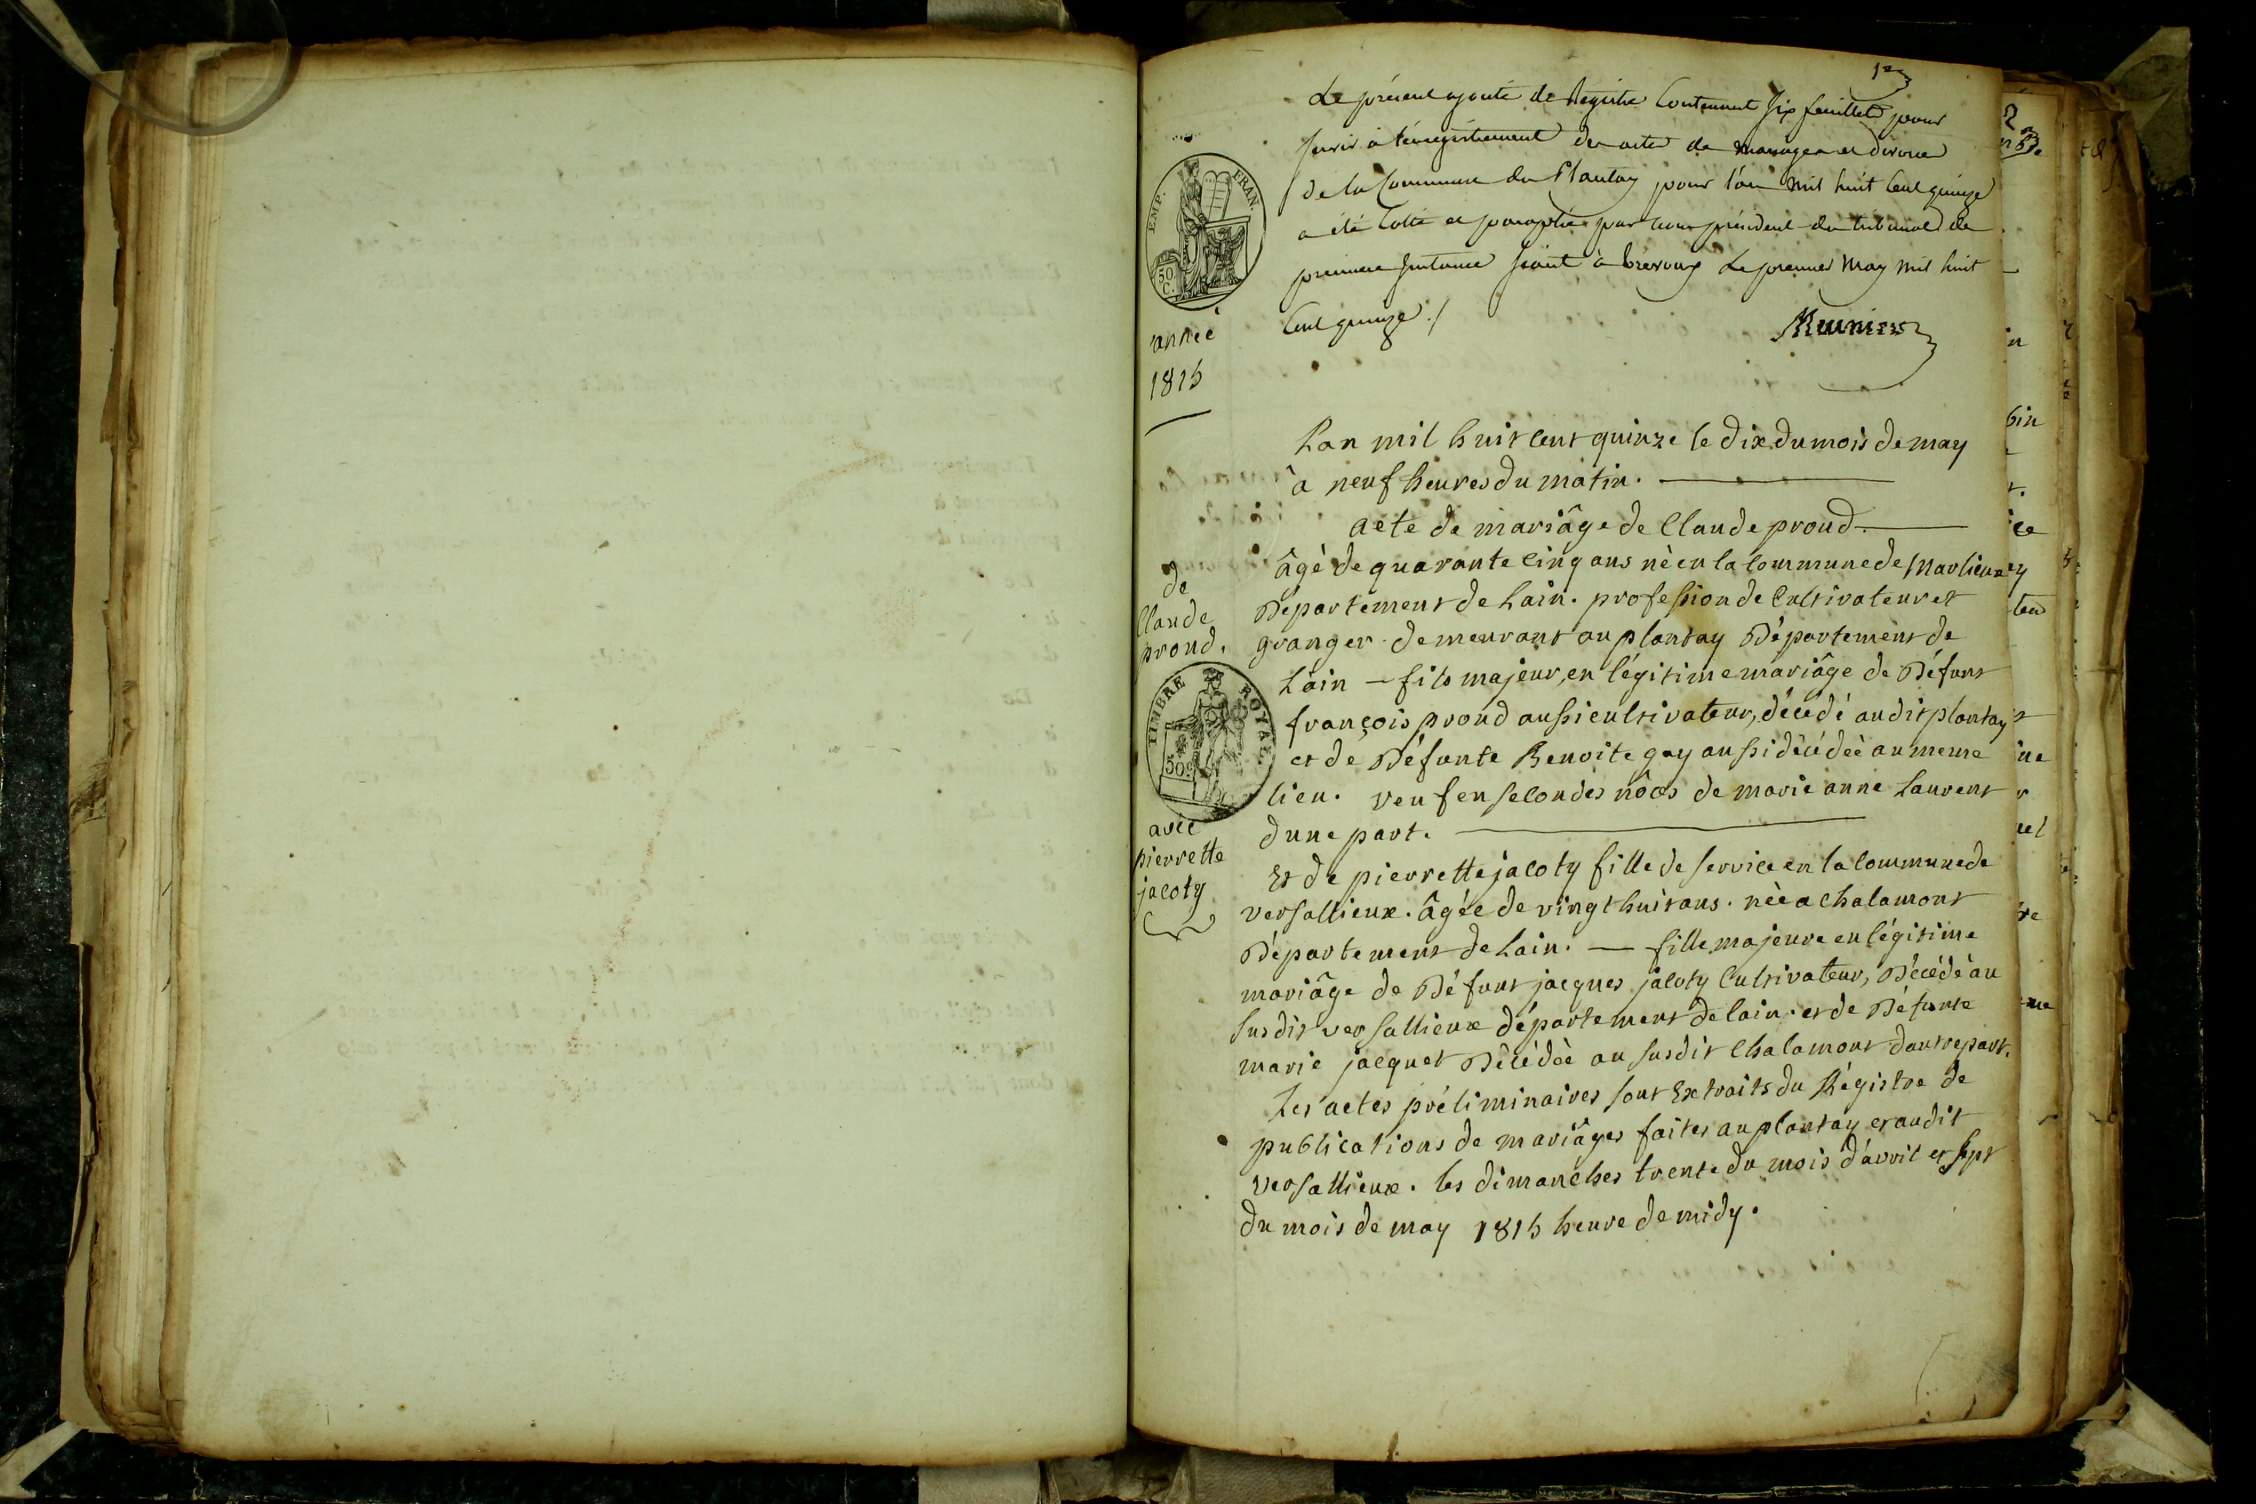 1er
Le présent ajouté de Registre Contenant Six feuillets pour
servir à l'enregistrement des actes de mariages et divorce
de la Commune du Plantay pour l'an mil huit Cent quinze
a été Cotté et paraphé par nous président du tribunal de
premiere Instance séant à trevoux Le premier May mil huit
Cent quinze ./
Meunier
EMP. FRAN.
50 C.
année
1815
Lan mil huit cent quinze le dix du mois de may
à neuf heures du matin.
acte de mariâge de Claude proud
âgè de quarante cinq ans nè en la commune de Marlieux
Département de Lain. profession de Cultivateur et
granger demeurant au plantay Département de
Lain - fils majeur, en légitime mariâge de Défunt
françois proud aussi cultivateur, décédé audit plantay
et dé Défunte Benoite gay aussi dècédèè au meme
lieu. veuf en secondes nôcs de marie anne Laurent
dune part.
de
Claude
proud.
TIMBRE ROYAL
50c
avec
pierrette
jacoty
Et de pierrette jacoty fille de service en la commune de
versallieux. âgée de vingt huit ans. nèè a chalamont
Département de Lain. — fille majeure en légitime
mariâge de Défunt jacques jacoty Cultivateur, Décédè au
susdit versallieux département de lain. et de Défunte
marie jacquet Dècédèè au susdit Chalamont dautre part.
Les actes préliminaires sont Extraits du Régistre de
publications de mariâges faites au plantay et audit
versallieux. les dimanches trente du mois d'avril et sept
du mois de may 1815 heure de midy.